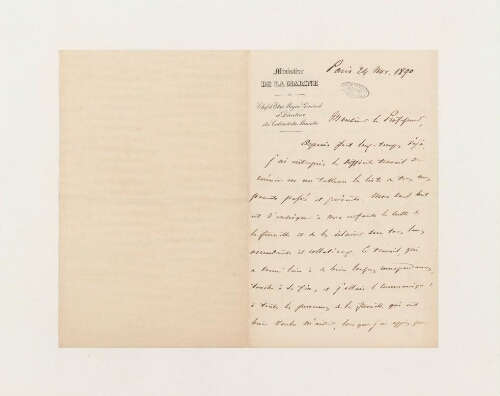 Ministère
DE LA MARINE
Chef d'Etat Major Général
et Directeur
du Cabinet du Ministre
Paris 24 Nov. 1890
Monsieur le Président,
Depuis fort longtemps déjà
j'ai entrepris le difficile travail de
réunir en un tableau la liste de tous mes
parents passés et présents. Mon seul but
est d'indiquer à mes enfants la
la famille et de les éclairer sur tous leurs
ascendants et collatéraux. Ce travail, qui
a donné lieu à de bien longues correspondances,
touche à sa fin, et j'allais le communiquer
à toutes les personnes de la famille qui ont
bien voulu m'aider, lorsque j'ai appris que